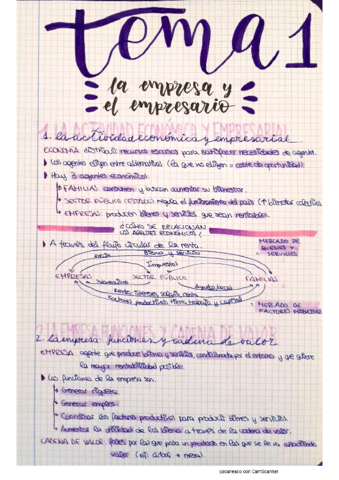 tema 1
la empresa y
el empresario
1. la actividad económica y empresarial
ECONOMÍA: estudia los recursos escasos para satisfacer necesidades de agentes.
Los agentes eligen entre alternativas (la que no eligen = coste de oportunidad).
Hay 3 agentes económicos:
FAMILIAS: consumen y buscan aumentar su bienestar.
SECTOR PÚBLICO (ESTADO): regula el funcionamiento del país (↑ bienestar colectivo
EMPRESAS: producen bienes y servicios que sean rentables.
¿CÓMO SE RELACIONAN
LOS AGENTES ECONÓMICOS?
A través del flujo circular de la renta.
MERCADO DE
BIENES Y
SERVICIOS
Bienes y servicios
Impuestos
EMPRESAS
SECTOR PÚBLICO
FAMILIAS
Ayuda social
Renta, intereses, salario, renta
Factores productivos: tierra, trabajo y capital
MERCADO DE
FACTORES PRODUCTIVOS
2. la empresa: funciones y cadena de valor
EMPRESA: agente que produce bienes y servicios, condicionada por el entorno y que quiere
la mayor rentabilidad posible.
Las funciones de la empresa son:
Generar riqueza.
Generar empleo.
Coordinar los factores productivos para producir bienes y servicios
Aumentar la utilidad de los bienes a través de la cadena de valor.
CADENA DE VALOR: fases por las que pasa un producto en las que se le va añadiendo
valor (ej: árbol → mesa).
Escaneado con CamScanner